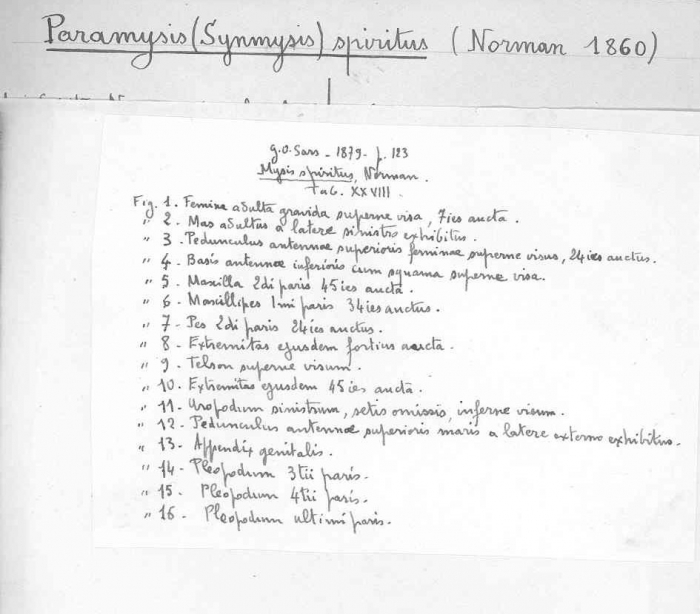 Paramysis (Synmysis) spiritus (Norman 1860)
g.O. Sars - 1879 - p. 123
Mysis spiritus, Norman.
Tab. XXVIII.
Fig. 1. Femina adulta gravida superne visa, 7ies aucta.
" 2. Mas adultus a latere sinistro exhibitus.
" 3. Pedunculus antennae superioris feminae superne visus, 24ies auctus.
" 4. Basis antennae inferioris cum squama superne visa.
" 5. Maxilla 2di paris 45ies aucta.
" 6. Maxillipes 1mi paris 34ies auctus.
" 7. Pes 2di paris 24ies auctus.
" 8. Extremitas ejusdem fortius aucta.
" 9. Telson superne visum.
" 10. Extremitas ejusdem 45ies aucta.
" 11. Uropodum sinistrum, setis omissis, inferne visum.
" 12. Pedunculus antennae superioris maris a latere externo exhibitus.
" 13. Appendix genitalis.
" 14. Pleopodum 3tii paris.
" 15. Pleopodum 4tii paris.
" 16. Pleopodum ultimi paris.